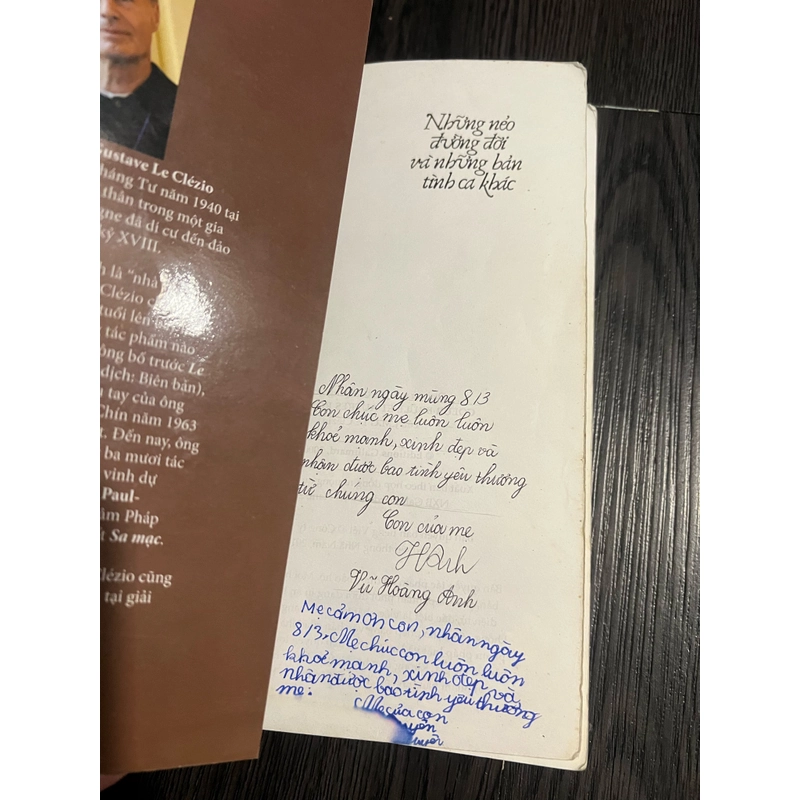 ustave Le Clézio
háng Tư năm 1940 tại
thân trong một gia
gne đã di cư đến đảo
kỷ XVIII.
h là "nhà
Clézio
tuổi lên
tác phẩm nào
ông bố trước Le
dịch: Biên bản),
tay của ông
Chín năm 1963
t. Đến nay, ông
ba mươi tác
vinh dự
Paul-
âm Pháp
t Sa mạc.
Clézio cũng
tại giải
Những nẻo
đường đời
và những bản
tình ca khác
Nhân ngày mùng 8/3
Con chúc mẹ luôn luôn
khoẻ mạnh, xinh đẹp và
nhận được bao tình yêu thương
từ chúng con
Con của mẹ
HAnh
Vũ Hoàng Anh
Mẹ cảm ơn con, nhân ngày
8/3, Mẹ chúc con luôn luôn
khoẻ mạnh, xinh đẹp và
nhận được bao tình yêu thương
mẹ.
Mẹ của con